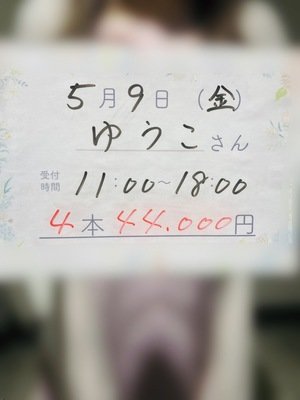 5月9日 (金)
ゆうこさん
受付時間 11:00~18:00
4本 44.000円